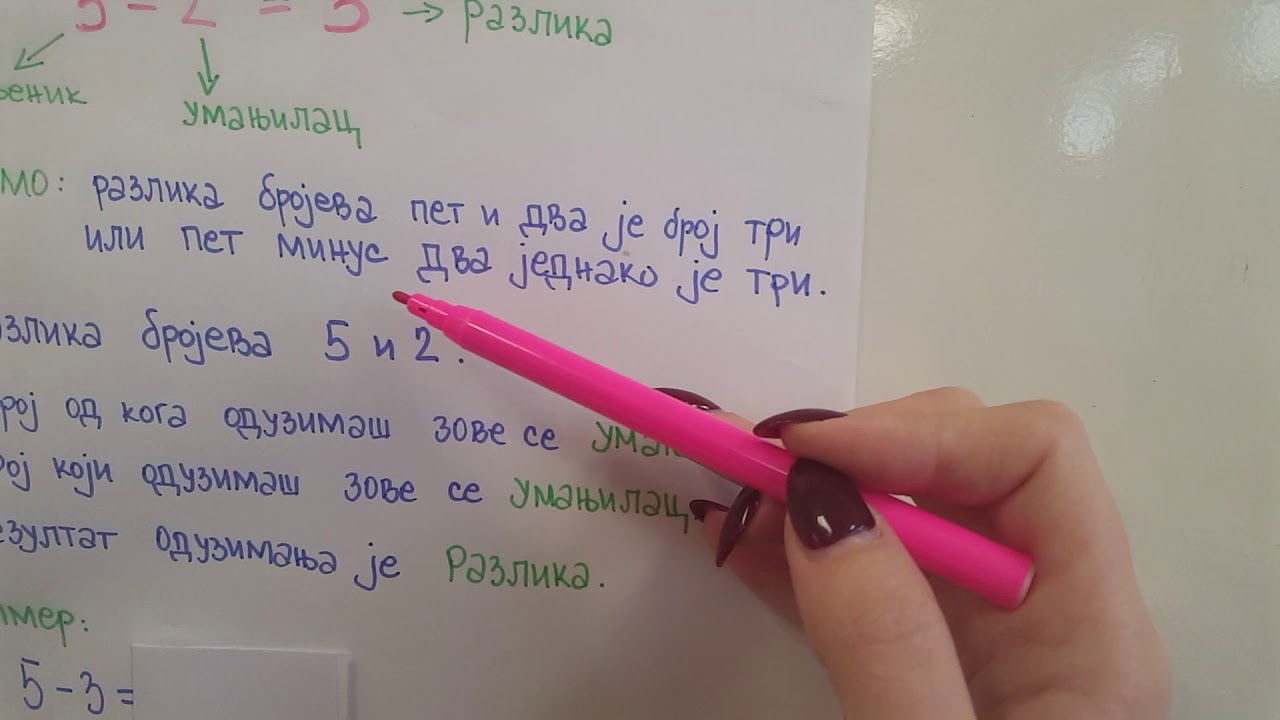 5 - 2 = 3 → Разлика
умањилац
разлика бројева пет и два је број три
или пет минус два једнако је три.
бројева 5 и 2.
од кога одузимаш зове се
који одузимаш зове се умањилац
одузимања је Разлика.
5 - 3 =